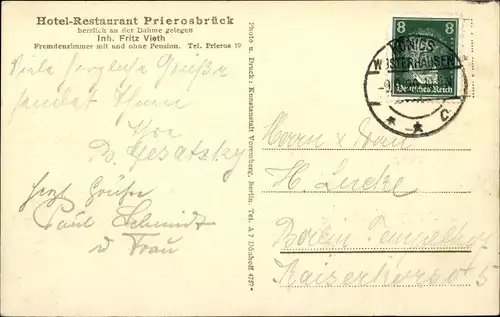 Hotel-Restaurant Prierosbrück
herrlich an der Dahme gelegen
Inh. Fritz Vieth
Fremdenzimmer mit und ohne Pension. Tel. Prieros 19
Viele herzliche Grüße
sendet Ihnen
Ihre
Herzl Grüße
Paul Schmidt
u Frau
Photo u. Druck: Kunstanstalt Voremberg, Berlin. Tel. A 7 Dönhoff 4757
8 8
KÖNIGS
WUSTERHAUSEN
Deutsches Reich
* * C
Herrn u Frau
H. Lucke
Berlin Tempelhof
Kaiserkorso 5